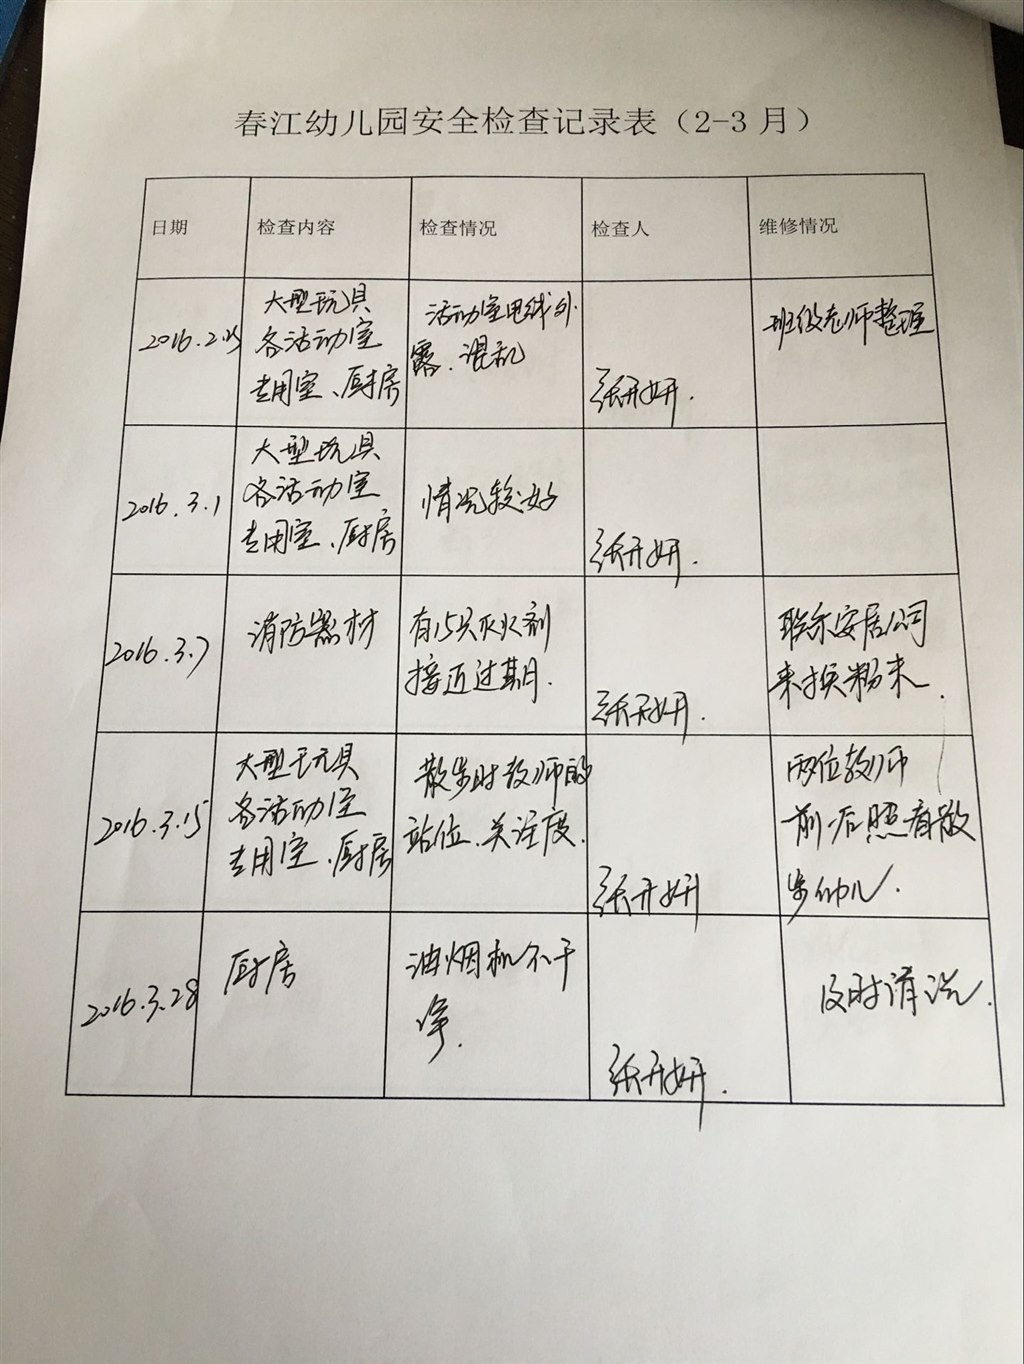 春江幼儿园安全检查记录表（2-3月）
日期 检查内容 检查情况 检查人 维修情况
大型玩具
各活动室
专用室、厨房
活动室电线外
露、混乱
张开妍.
班级老师整理
2016.3.1
大型玩具
各活动室
专用室、厨房
情况较好
张开妍.
2016.3.7
消防器材
有15只灭火剂
接近过期.
张开妍.
联系安居公司
来换粉末.
2016.3.15
大型玩具
各活动室
专用室、厨房
散步时教师的
站位、关注度.
张开妍
两位教师
前后照看散
步幼儿.
2016.3.28
厨房
油烟机不干
净.
张开妍.
及时清洗.